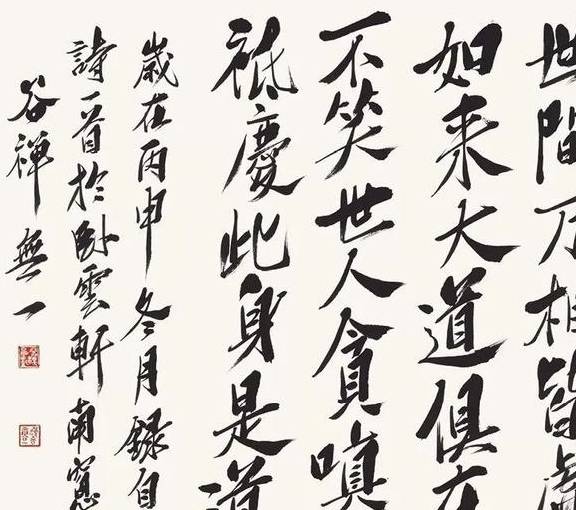 世間万相皆虛
如来大道俱在
不笑世人貪嗔
祗慶此身是道
歲在丙申冬月錄自
詩一首於卧雲軒南窓
谷禅無一